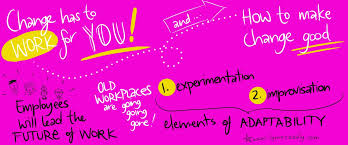 Change has to
WORK for YOU!
and
How to make
change good
OLD
WORKPLACES
are going
going
gone!
1. experimentation
2. improvisation
elements of ADAPTABILITY
Employees
will lead the
FUTURE of WORK